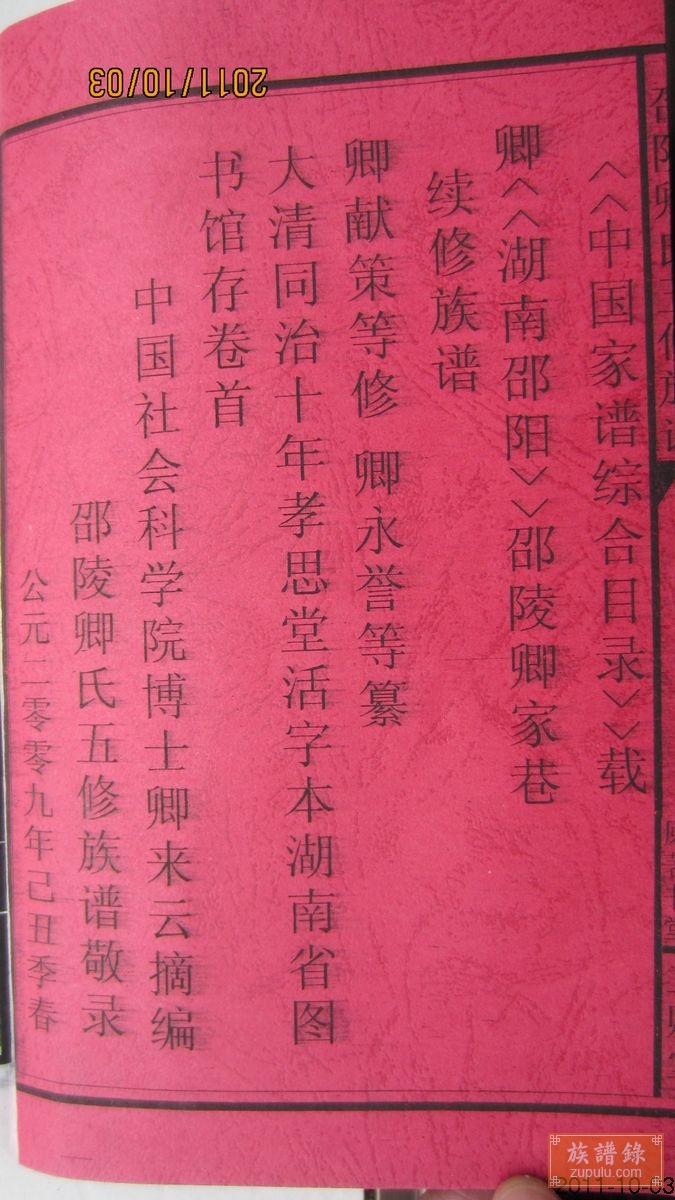 《中国家谱综合目录》载
卿《湖南邵阳》邵陵卿家巷
续修族谱
卿献策等修 卿永誉等纂
大清同治十年孝思堂活字本湖南省图
书馆存卷首
中国社会科学院博士卿来云摘编
邵陵卿氏五修族谱敬录
公元二零零九年己丑季春
2011/10/03
族譜錄
zupulu.com
2011-10-03